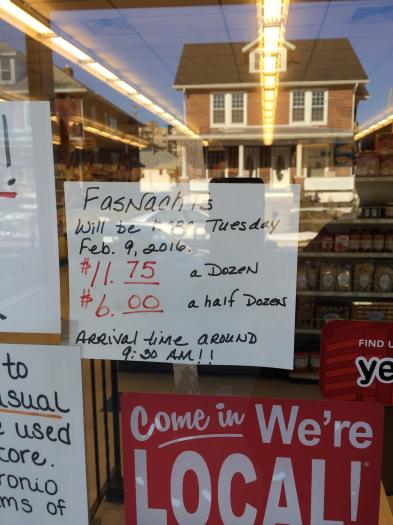 !
Fasnachts
Will be Tuesday
Feb. 9, 2016.
$11.75 a Dozen
$6.00 a half Dozen
Arrival time around
9:30 AM!!
to
usual
used
ore.
ronio
ms of
FIND U
ye
Come in We're
LOCAL!